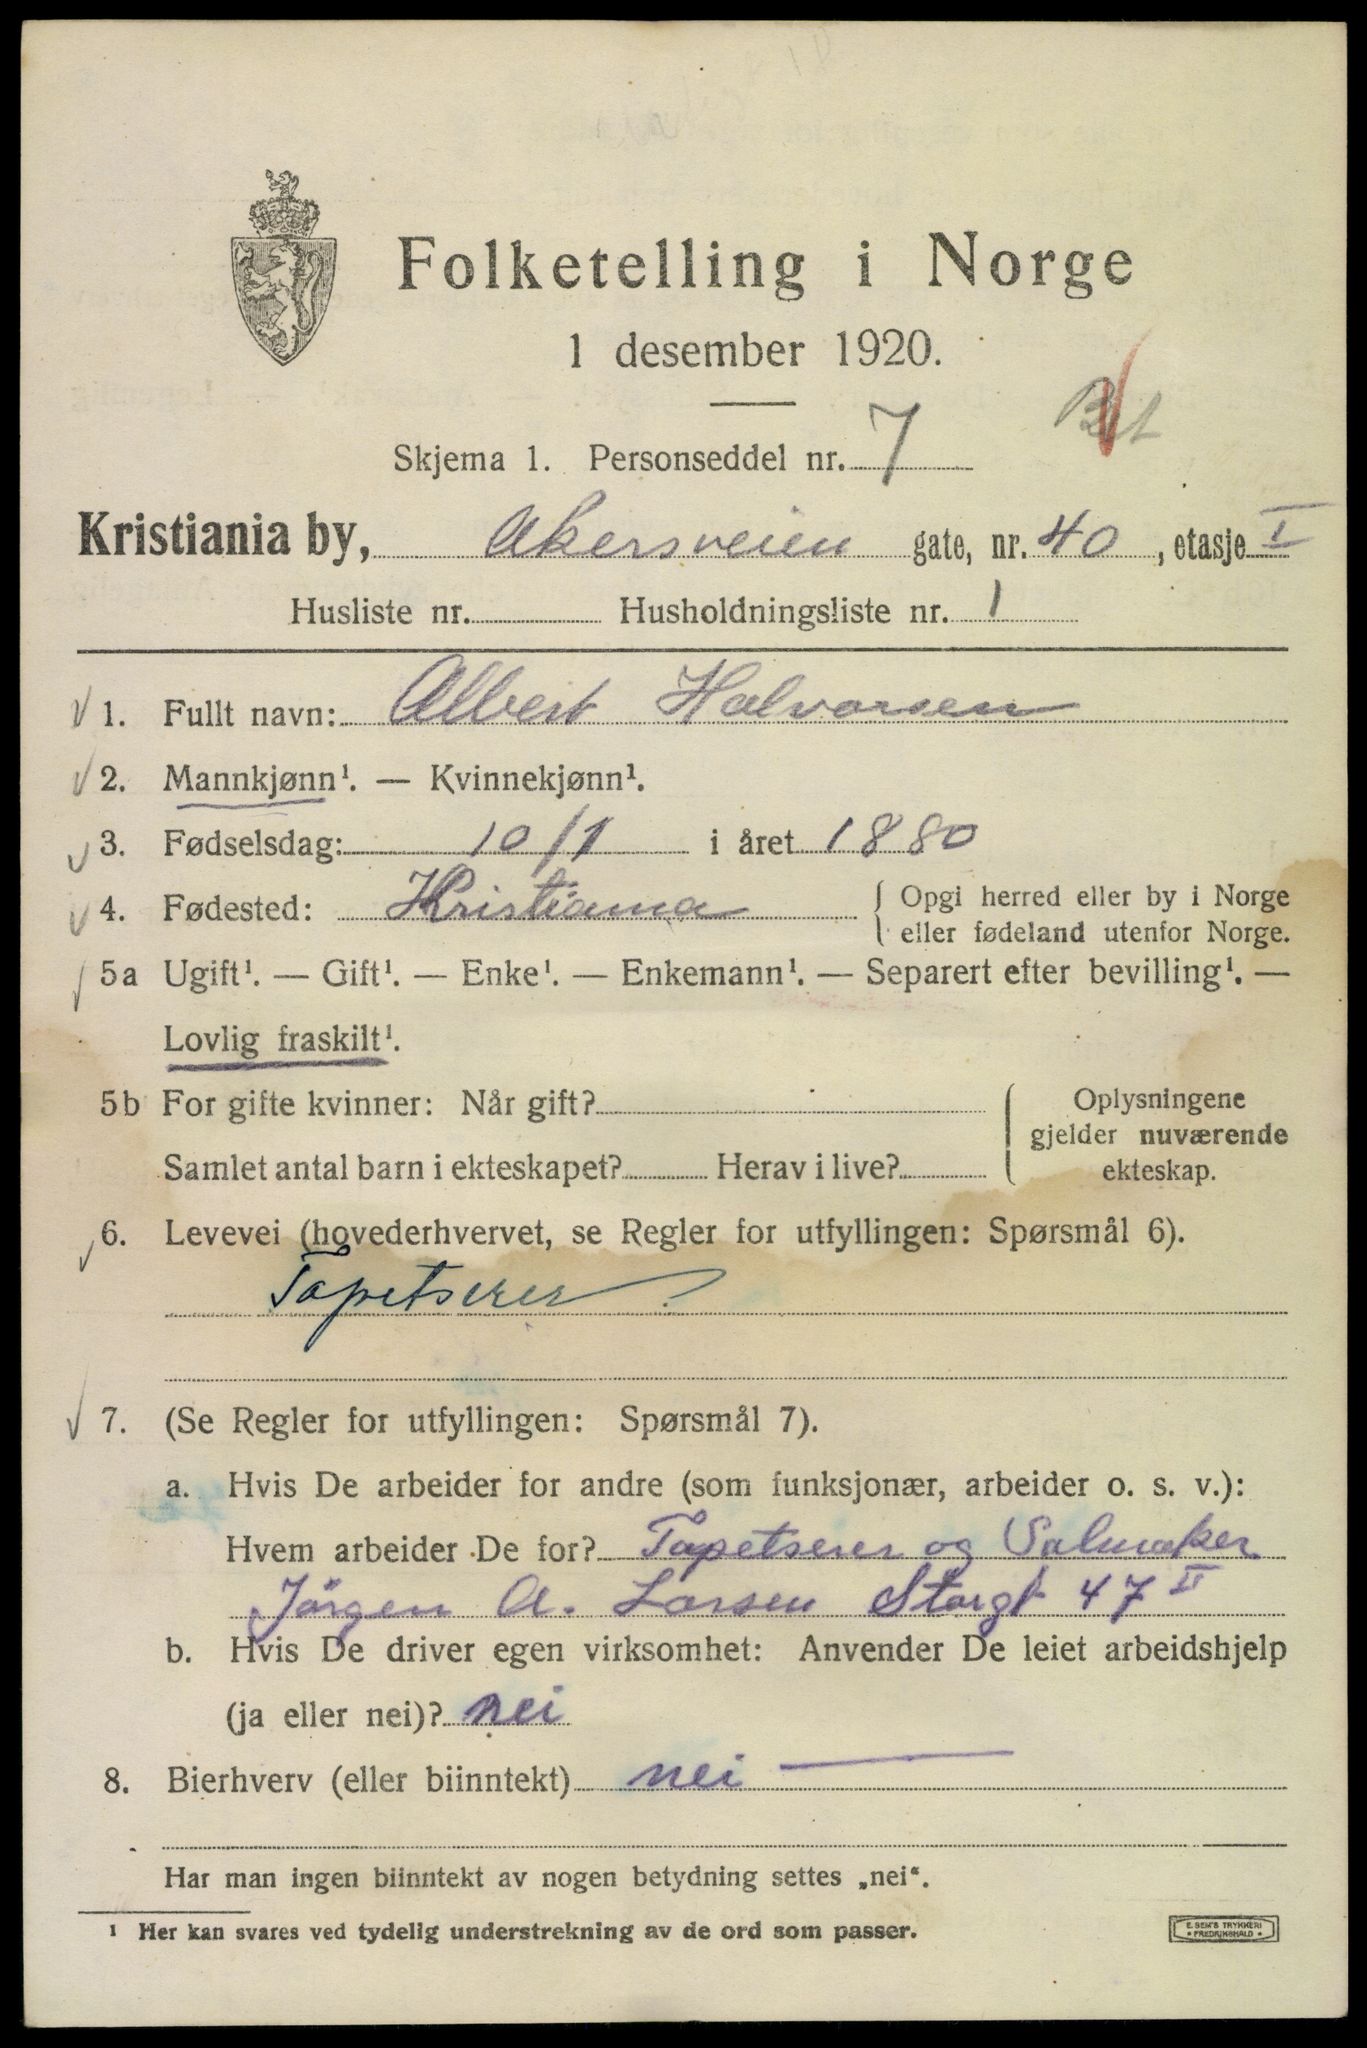 Folketelling i Norge
1 desember 1920.
Skjema 1. Personseddel nr. 7
Kristiania by, Akersveien gate, nr. 40, etasje I
Husliste nr. Husholdningsliste nr. 1
1. Fullt navn: Albert Halvorsen
2. Mannkjønn¹. — Kvinnekjønn¹.
3. Fødselsdag: 10/1 i året 1880
4. Fødested: Kristiania { Opgi herred eller by i Norge
eller fødeland utenfor Norge.
5a Ugift¹. — Gift¹. — Enke¹. — Enkemann¹. — Separert efter bevilling¹. —
Lovlig fraskilt¹.
5b For gifte kvinner: Når gift? { Oplysningene
gjelder nuværende
Samlet antal barn i ekteskapet? Herav i live? ekteskap.
6. Levevei (hovederhvervet, se Regler for utfyllingen: Spørsmål 6).
Tapetserer
7. (Se Regler for utfyllingen: Spørsmål 7).
a. Hvis De arbeider for andre (som funksjonær, arbeider o. s. v.):
Hvem arbeider De for? Tapetserer og Salmaker
Jörgen A. Larsen Storgt 47 II
b. Hvis De driver egen virksomhet: Anvender De leiet arbeidshjelp
(ja eller nei)? nei
8. Bierhverv (eller biinntekt) nei —
Har man ingen biinntekt av nogen betydning settes „nei“.
¹ Her kan svares ved tydelig understrekning av de ord som passer.
E. SEM'S TRYKKERI
* FREDRIKSHALD *